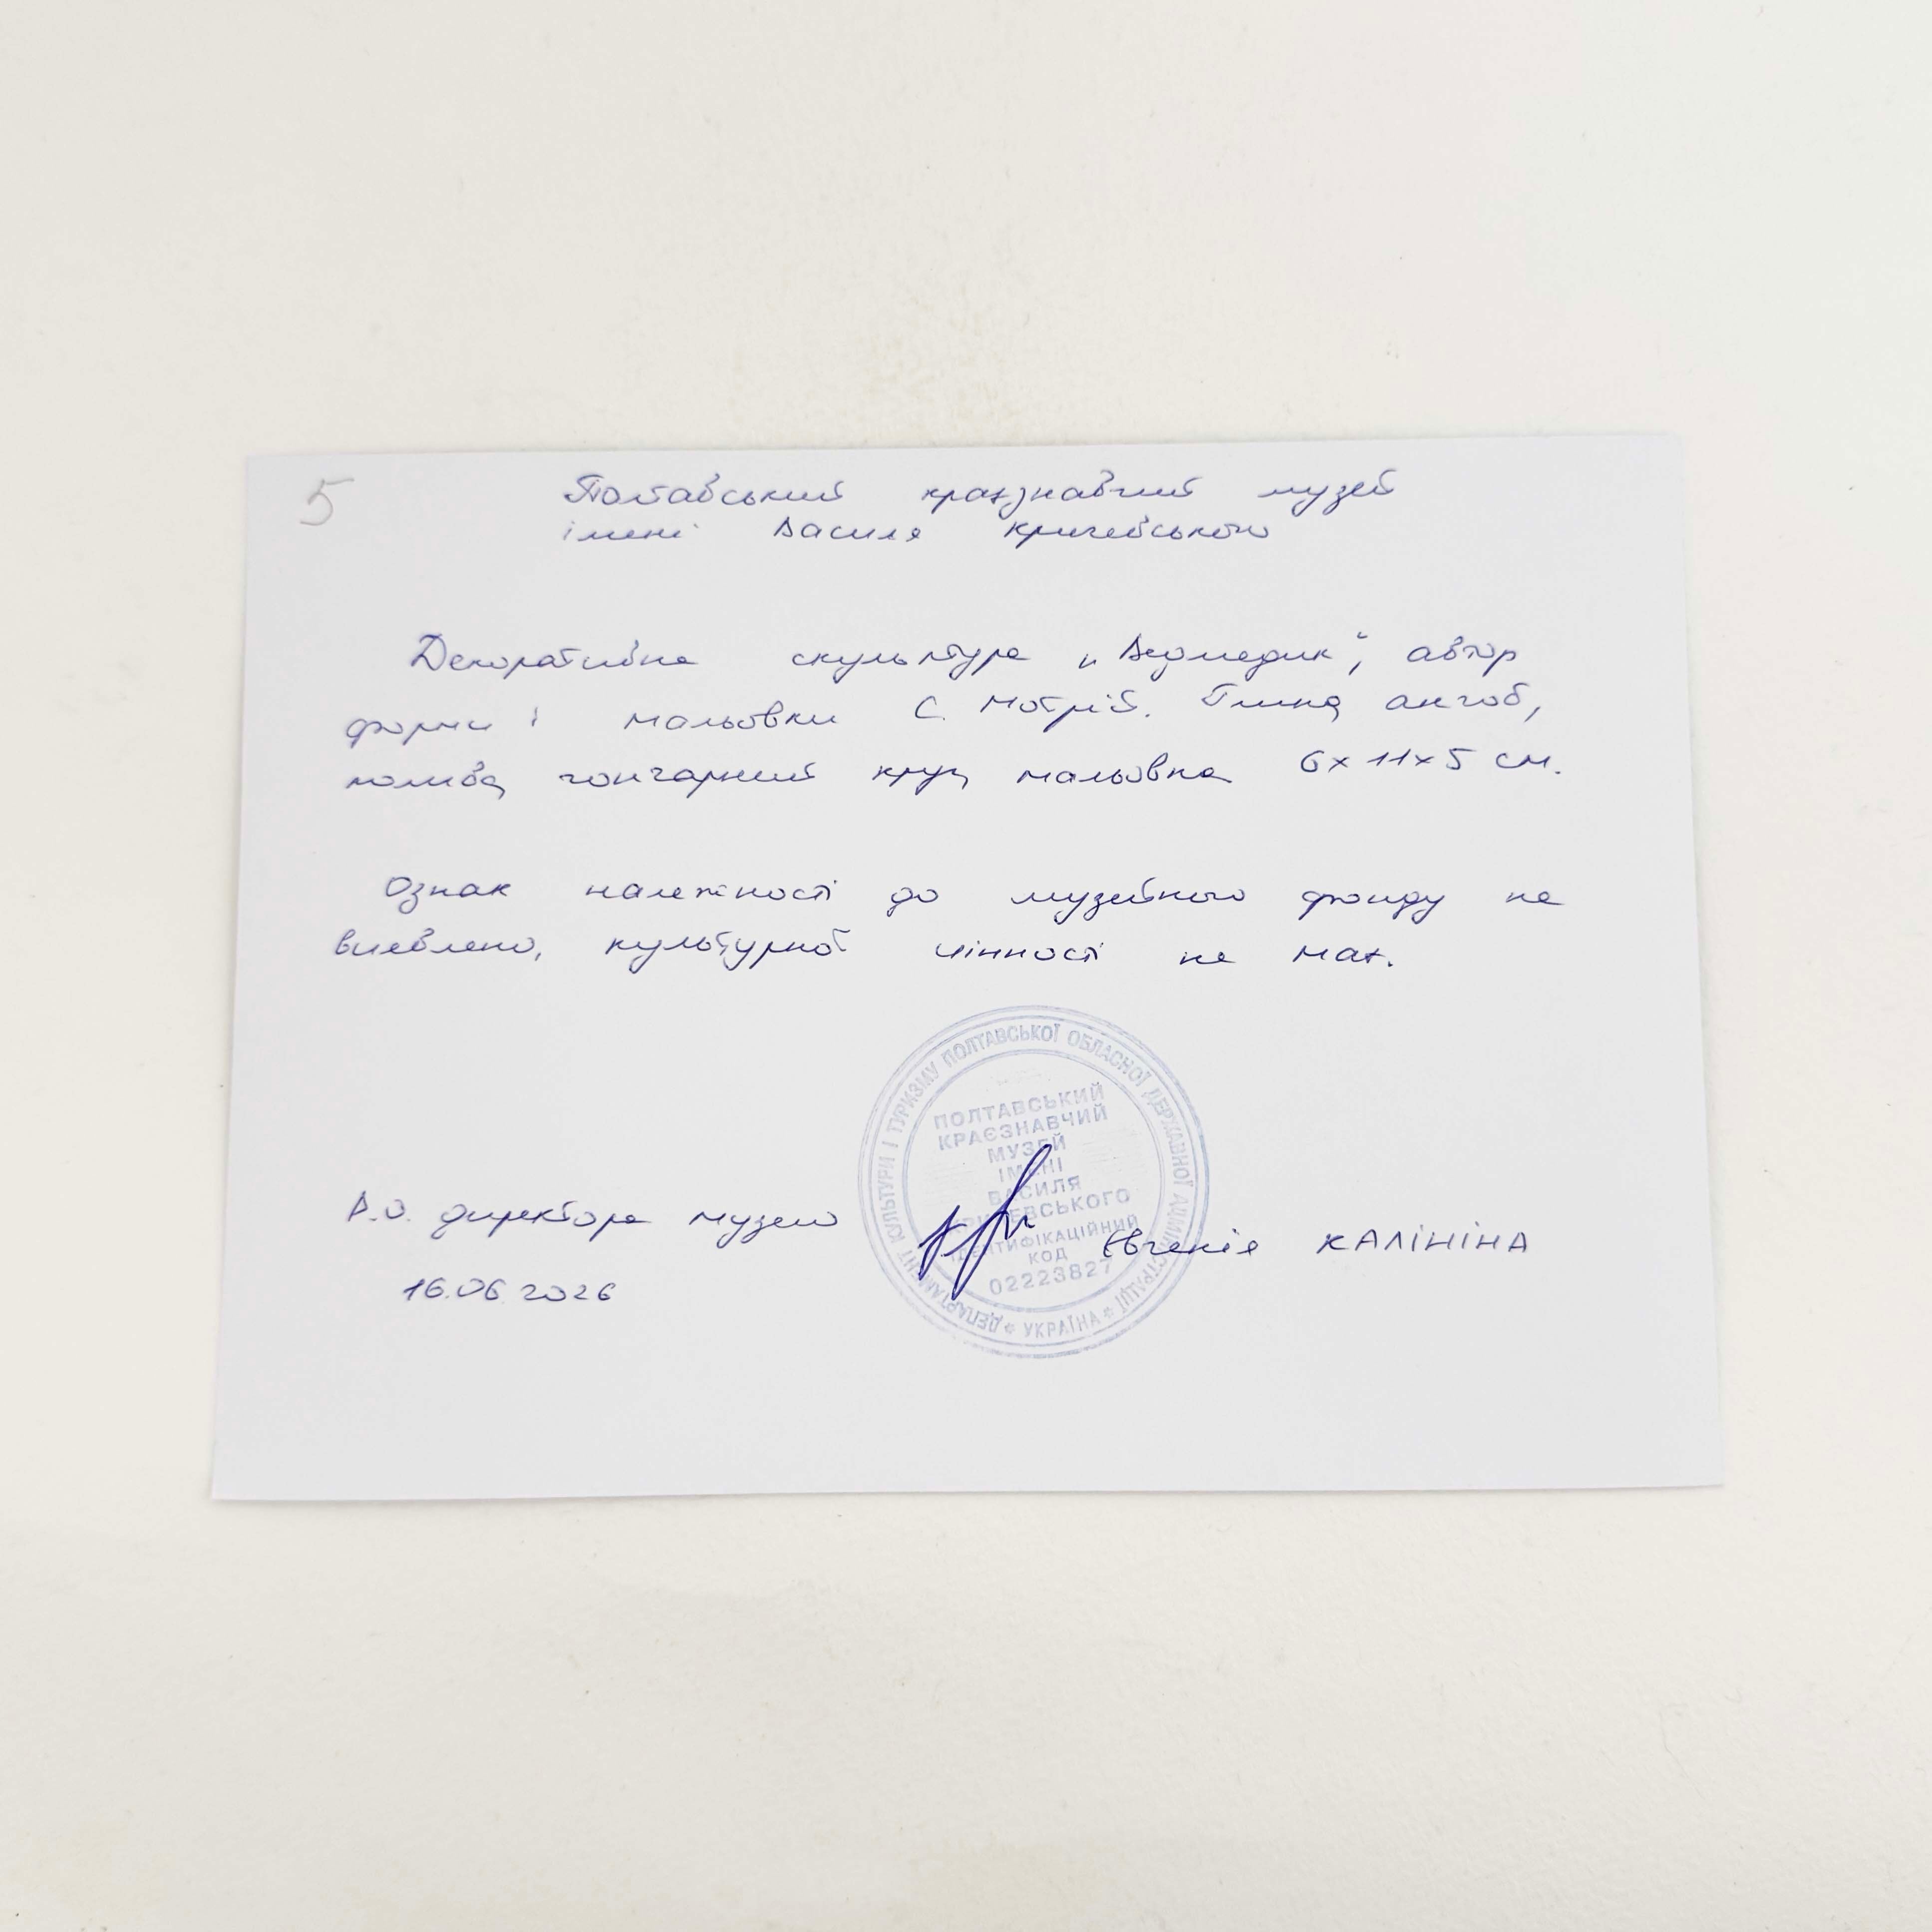 5
Полтавський краєзнавчий музей
імені Василя Кричевського
Декоративна скульптура „Ведмедик“, автор
форми і мальовки С. Мотрій. Глина, ангоб,
полива, гончарний круг, мальовка 6х11х5 см.
Ознак належності до музейного фонду не
виявлено, культурної цінності не має.
ДЕПАРТАМЕНТ КУЛЬТУРИ І ТУРИЗМУ ПОЛТАВСЬКОЇ ОБЛАСНОЇ ДЕРЖАВНОЇ АДМІНІСТРАЦІЇ * УКРАЇНА *
ПОЛТАВСЬКИЙ
КРАЄЗНАВЧИЙ
МУЗЕЙ
ІМЕНІ
ВАСИЛЯ
КРИЧЕВСЬКОГО
ІДЕНТИФІКАЦІЙНИЙ
КОД
02223827
В.о. директора музею Євгенія КАЛІНІНА
16.06.2026